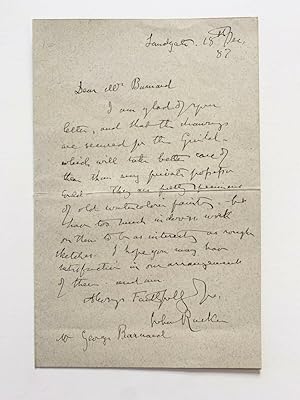 Sandgate. 18th Dec.
87
Dear Mr Barnard
I am glad of your
letter, and that the drawings
are secured for the Guild -
which will take better care of
them than any private possessor
could. They are pretty specimens
of old watercolour painting - but
have too much in work
on them to be as interesting as rough
sketches. I hope you may have
satisfaction in our arrangement
of them and am
Always Faithfully Yrs.
John Ruskin
Mr George Barnard